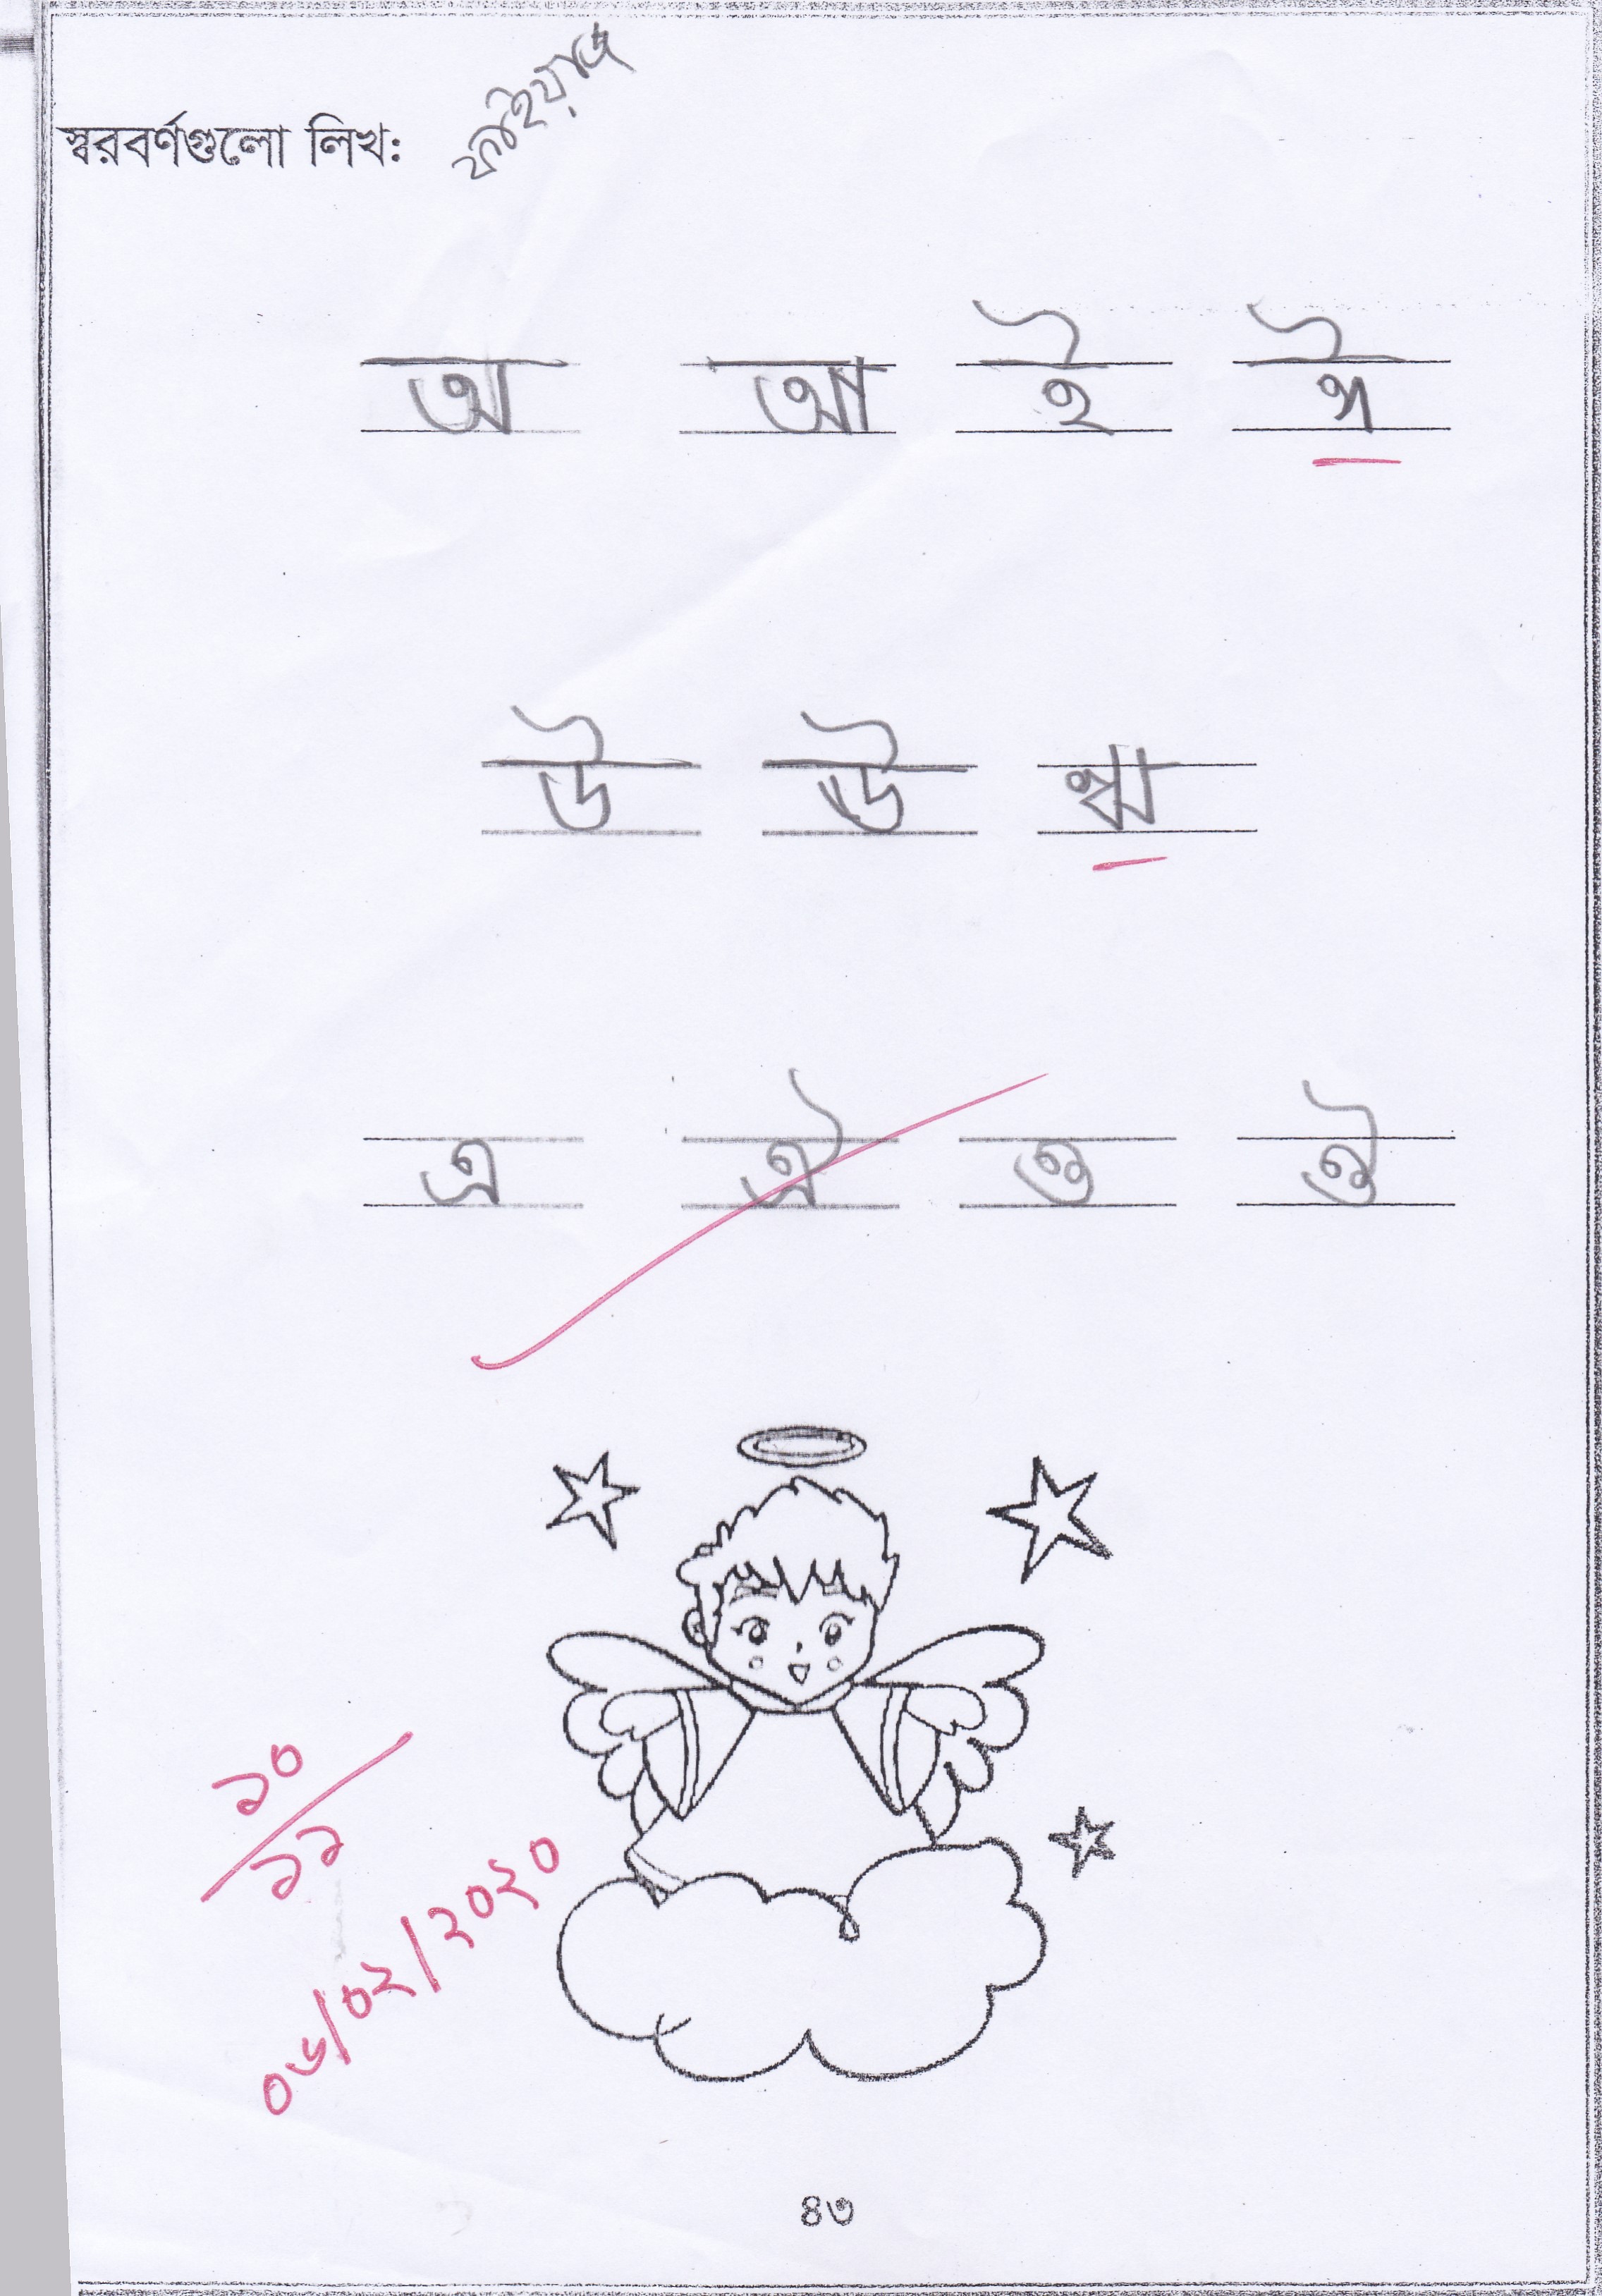 স্বরবর্ণগুলো লিখ:
ফাইয়াজ
অ আ ই ঈ
উ ঊ ঋ
এ ঐ ও ঔ
১০
১১
০৬/০২/২০২০
৪৩